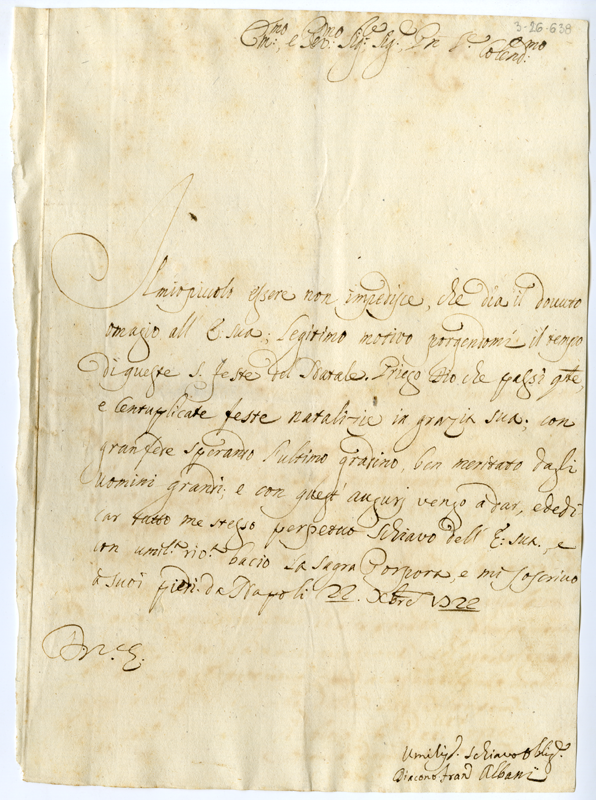 3-26-638
Em:mo, e Rev:mo Sig:e Sig:e, Pn P:e Colend:mo
Il mio picolo essere non impedisce, che dia il dovuto
omagio all' E. sua; legitimo motivo porgendomi il tempo
di queste S. feste del Natale. Priego Dio che passi q:te,
e centuplicate feste natalizie in grazia sua; con
gran fede sperando l'ultimo gradino, ben meritato dagli
uomini grandi: e con quest' augurj vengo a dar, e dedi
car tutto me stesso perpetuo schiavo dell' E: sua., e
con umil: bacio la sagra Porpora, e mi soscrivo
a suoi piedi. da Napoli 22. Xbre 1722
Umilis:o schiavo oblig:o
Diacono Fran:o Albani